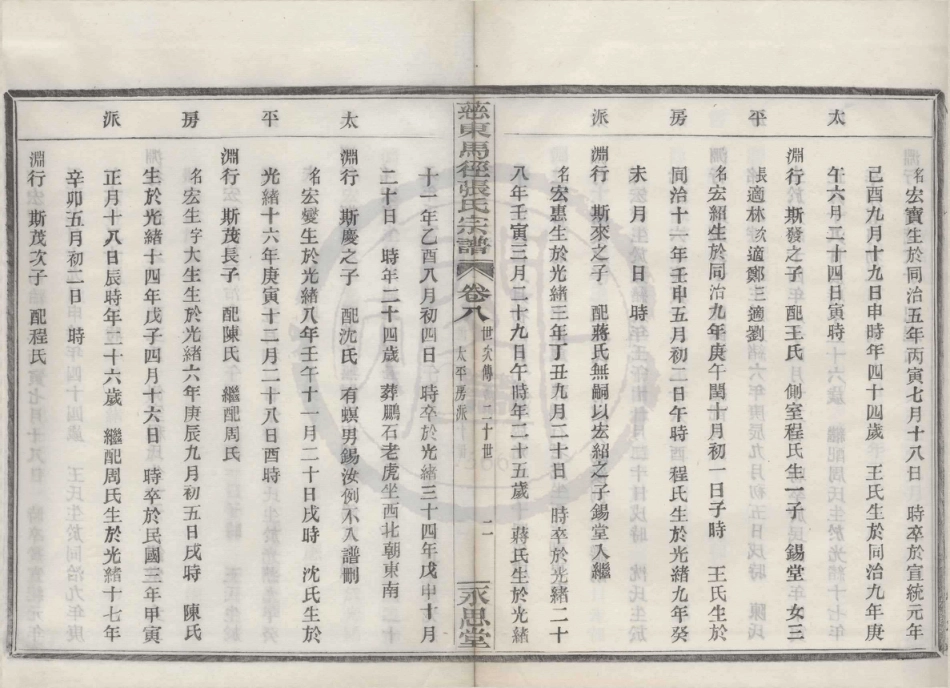 太平房派
名宏寶生於同治五年丙寅七月十八日　時卒於宣統元年
己酉九月十九日申時年四十四歲　王氏生於同治九年庚
午六月二十四日寅時
淵行　斯發之子　配王氏　側室程氏生一子　錫堂　女三
長適林次適鄭三適劉
名宏紹生於同治九年庚午閏十月初一日子時　王氏生於
同治十一年壬申五月初二日午時　程氏生於光緒九年癸
未　月　日　時
淵行　斯來之子　配蔣氏無嗣以宏紹之子錫堂入繼
名宏惠生於光緒三年丁丑九月二十日　時卒於光緒二十
八年壬寅三月二十九日午時年二十五歲　蔣氏生於光緒
慈東馬徑張氏宗譜　卷八　世次傳　二十世　太平房派　二　永思堂
太平房派
十一年乙酉八月初四日　時卒於光緒三十四年戊申十月
二十日　時年二十四歲　葬鵬石老虎坐西北朝東南
淵行　斯慶之子　配沈氏　有螟男錫汝例不入譜刪
名宏燮生於光緒八年壬午十一月二十日戌時　沈氏生於
光緒十六年庚寅十二月二十八日酉時
淵行　斯茂長子　配陳氏　繼配周氏
名宏生字大生生於光緒六年庚辰九月初五日戌時　陳氏
生於光緒十四年戊子四月十六日　時卒於民國三年甲寅
正月十八日辰時年二十六歲　繼配周氏生於光緒十七年
辛卯五月初二日　時
淵行　斯茂次子　配程氏